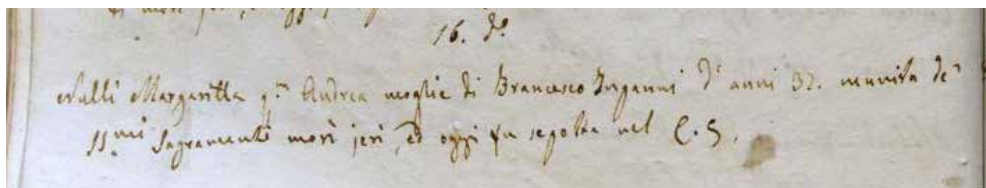 16. d.o
Nulli Margaritta q.m Andrea moglie di Francesco Inganni d'anni 32. munita de'
SS.mi Sagramenti morì jeri, ed oggi fu sepolta nel C. S.